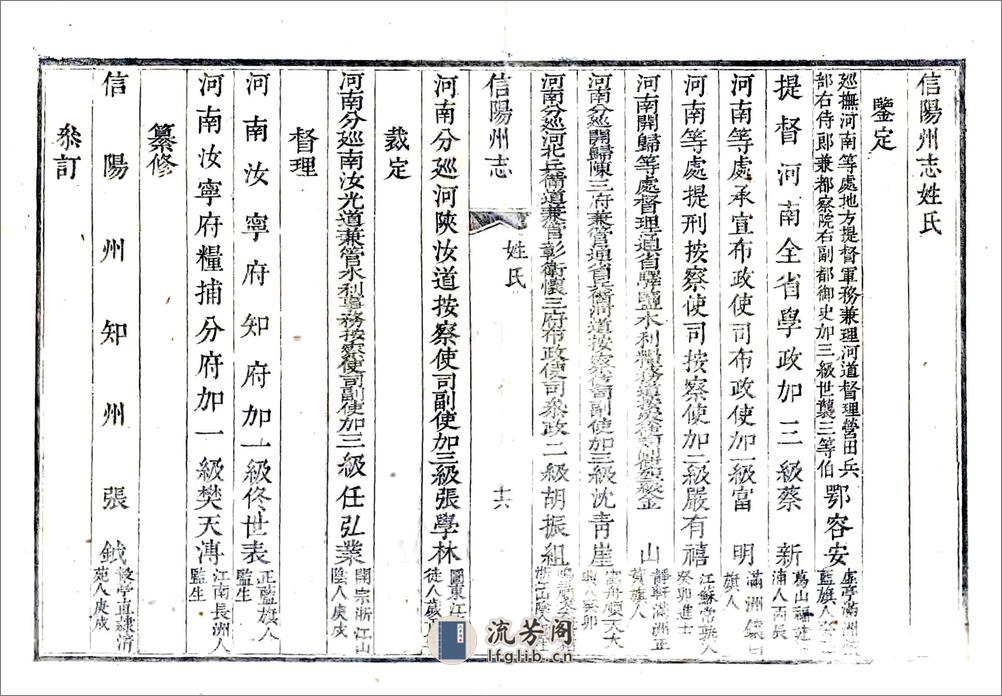 信陽州志姓氏
鑒定
廵撫河南等處地方提督軍務兼理河道督理營田兵
部右侍郎兼都察院右副都御史加三級世襲三等伯
鄂容安
虛亭滿洲
藍旗人
提督河南全省學政加三級蔡新
葛山福建
浦人丙辰
河南等處承宣布政使司布政使加一級富明
滿洲鑲
旗人
河南等處提刑按察使司按察使加二級嚴有禧
江蘇常熟人
癸卯進士
河南開歸等處督理通省驛鹽水利糧務道
金山
靜軒滿洲正
黃旗人
河南分廵開歸陳三府兼管通省兵衛河道按察使司副使加三級沈青崖
河南分廵河北兵備道兼管彰衛懷三府布政使司叅政二級胡振組
信陽州志
姓氏
十六
河南分廵河陝汝道按察使司副使加三級張學林
裁定
河南分廵南汝光道兼管水利事務按察使司副使加三級任弘業
開宗浙江山
陰人庚戌
督理
河南汝寧府知府加一級佟世表
正藍旗人
監生
河南汝寧府糧捕分府加一級樊天漙
江南長洲人
監生
纂修
信陽州知州張鉞
毅亭直隸清
苑人庚戌
叅訂
流芳阁
lfglib.cn